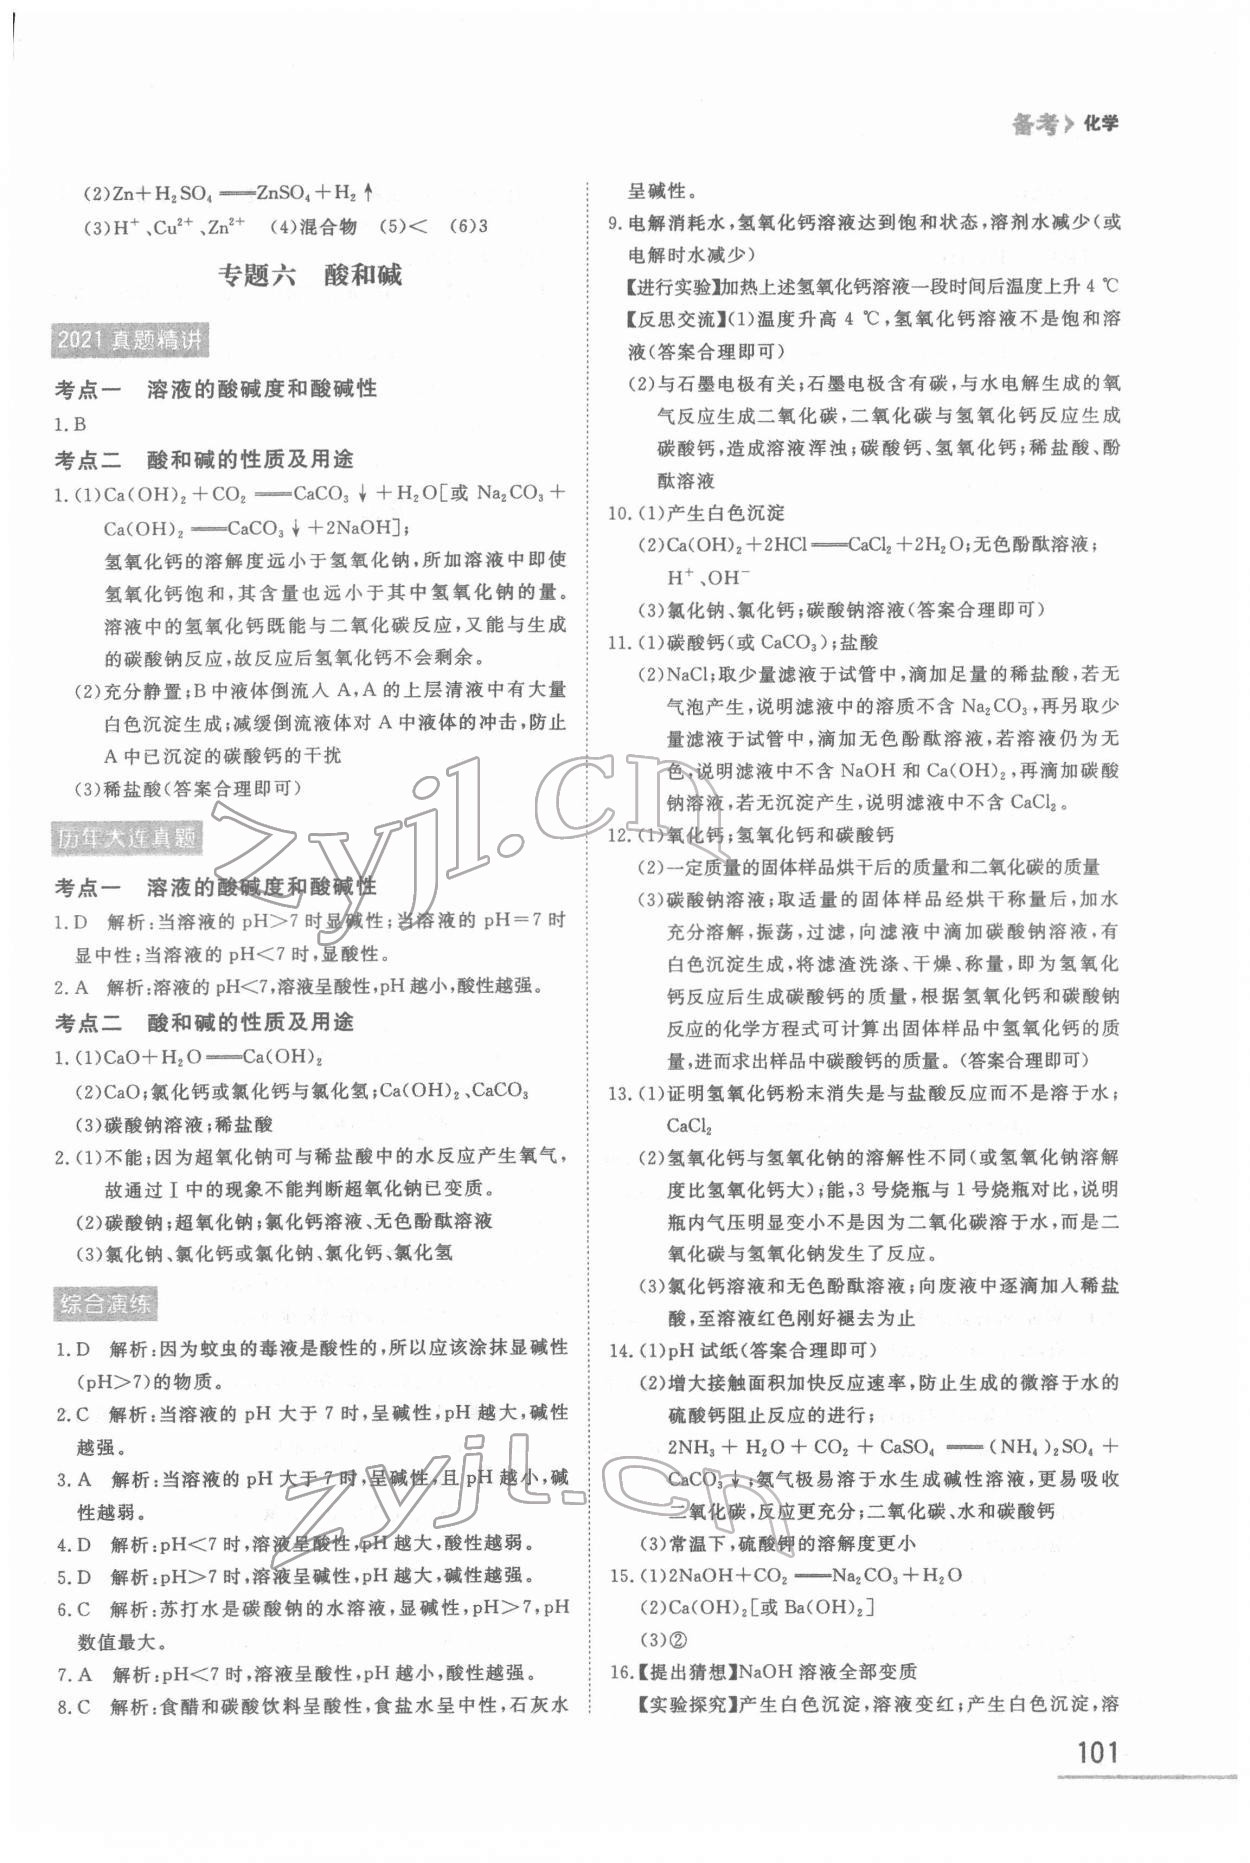 备考 化学
(2)Zn+H₂SO₄══ZnSO₄+H₂↑
(3)H⁺、Cu²⁺、Zn²⁺ (4)混合物 (5)< (6)3
专题六 酸和碱
2021 真题精讲
考点一 溶液的酸碱度和酸碱性
1. B
考点二 酸和碱的性质及用途
1. (1)Ca(OH)₂+CO₂══CaCO₃↓+H₂O[或 Na₂CO₃+
Ca(OH)₂══CaCO₃↓+2NaOH];
氢氧化钙的溶解度远小于氢氧化钠,所加溶液中即使
氢氧化钙饱和,其含量也远小于其中氢氧化钠的量。
溶液中的氢氧化钙既能与二氧化碳反应,又能与生成
的碳酸钠反应,故反应后氢氧化钙不会剩余。
(2)充分静置;B中液体倒流入 A,A 的上层清液中有大量
白色沉淀生成;减缓倒流液体对 A 中液体的冲击,防止
A 中已沉淀的碳酸钙的干扰
(3)稀盐酸(答案合理即可)
历年大连真题
考点一 溶液的酸碱度和酸碱性
1. D 解析:当溶液的 pH>7 时显碱性;当溶液的 pH=7 时
显中性;当溶液的 pH<7 时,显酸性。
2. A 解析:溶液的 pH<7,溶液呈酸性,pH 越小,酸性越强。
考点二 酸和碱的性质及用途
1. (1)CaO+H₂O══Ca(OH)₂
(2)CaO;氯化钙或氯化钙与氯化氢;Ca(OH)₂、CaCO₃
(3)碳酸钠溶液;稀盐酸
2. (1)不能;因为超氧化钠可与稀盐酸中的水反应产生氧气,
故通过 I 中的现象不能判断超氧化钠已变质。
(2)碳酸钠;超氧化钠;氯化钙溶液、无色酚酞溶液
(3)氯化钠、氯化钙或氯化钠、氯化钙、氯化氢
综合演练
1. D 解析:因为蚊虫的毒液是酸性的,所以应该涂抹显碱性
(pH>7)的物质。
2. C 解析:当溶液的 pH 大于 7 时,呈碱性,pH 越大,碱性
越强。
3. A 解析:当溶液的 pH 大于 7 时,呈碱性,且 pH 越小,碱
性越弱。
4. D 解析:pH<7 时,溶液呈酸性,pH 越大,酸性越弱。
5. D 解析:pH>7 时,溶液呈碱性,pH 越大,碱性越强。
6. C 解析:苏打水是碳酸钠的水溶液,显碱性,pH>7,pH
数值最大。
7. A 解析:pH<7 时,溶液呈酸性,pH 越小,酸性越强。
8. C 解析:食醋和碳酸饮料呈酸性,食盐水呈中性,石灰水
呈碱性。
9. 电解消耗水,氢氧化钙溶液达到饱和状态,溶剂水减少(或
电解时水减少)
【进行实验】加热上述氢氧化钙溶液一段时间后温度上升 4 ℃
【反思交流】(1)温度升高 4 ℃,氢氧化钙溶液不是饱和溶
液(答案合理即可)
(2)与石墨电极有关;石墨电极含有碳,与水电解生成的氧
气反应生成二氧化碳,二氧化碳与氢氧化钙反应生成
碳酸钙,造成溶液浑浊;碳酸钙、氢氧化钙;稀盐酸、酚
酞溶液
10. (1)产生白色沉淀
(2)Ca(OH)₂+2HCl══CaCl₂+2H₂O;无色酚酞溶液;
H⁺、OH⁻
(3)氯化钠、氯化钙;碳酸钠溶液(答案合理即可)
11. (1)碳酸钙(或 CaCO₃);盐酸
(2)NaCl;取少量滤液于试管中,滴加足量的稀盐酸,若无
气泡产生,说明滤液中的溶质不含 Na₂CO₃,再另取少
量滤液于试管中,滴加无色酚酞溶液,若溶液仍为无
色,说明滤液中不含 NaOH 和 Ca(OH)₂,再滴加碳酸
钠溶液,若无沉淀产生,说明滤液中不含 CaCl₂。
12. (1)氧化钙;氢氧化钙和碳酸钙
(2)一定质量的固体样品烘干后的质量和二氧化碳的质量
(3)碳酸钠溶液;取适量的固体样品经烘干称量后,加水
充分溶解,振荡,过滤,向滤液中滴加碳酸钠溶液,有
白色沉淀生成,将滤渣洗涤、干燥、称量,即为氢氧化
钙反应后生成碳酸钙的质量,根据氢氧化钙和碳酸钠
反应的化学方程式可计算出固体样品中氢氧化钙的质
量,进而求出样品中碳酸钙的质量。(答案合理即可)
13. (1)证明氢氧化钙粉末消失是与盐酸反应而不是溶于水;
CaCl₂
(2)氢氧化钙与氢氧化钠的溶解性不同(或氢氧化钠溶解
度比氢氧化钙大);能,3 号烧瓶与 1 号烧瓶对比,说明
瓶内气压明显变小不是因为二氧化碳溶于水,而是二
氧化碳与氢氧化钠发生了反应。
(3)氯化钙溶液和无色酚酞溶液;向废液中逐滴加入稀盐
酸,至溶液红色刚好褪去为止
14. (1)pH 试纸(答案合理即可)
(2)增大接触面积加快反应速率,防止生成的微溶于水的
硫酸钙阻止反应的进行;
2NH₃+H₂O+CO₂+CaSO₄══(NH₄)₂SO₄+
CaCO₃↓;氨气极易溶于水生成碱性溶液,更易吸收
二氧化碳,反应更充分;二氧化碳、水和碳酸钙
(3)常温下,硫酸钾的溶解度更小
15. (1)2NaOH+CO₂══Na₂CO₃+H₂O
(2)Ca(OH)₂[或 Ba(OH)₂]
(3)②
16.【提出猜想】NaOH 溶液全部变质
【实验探究】产生白色沉淀,溶液变红;产生白色沉淀,溶
101
zyjl.cn
zyjl.cn